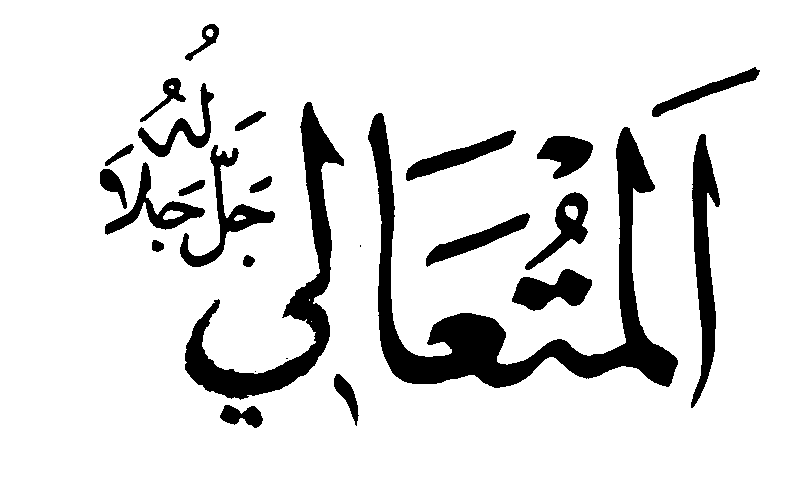 اَلْمُتَعَالِي
جَلَّ جَلَالُهُ